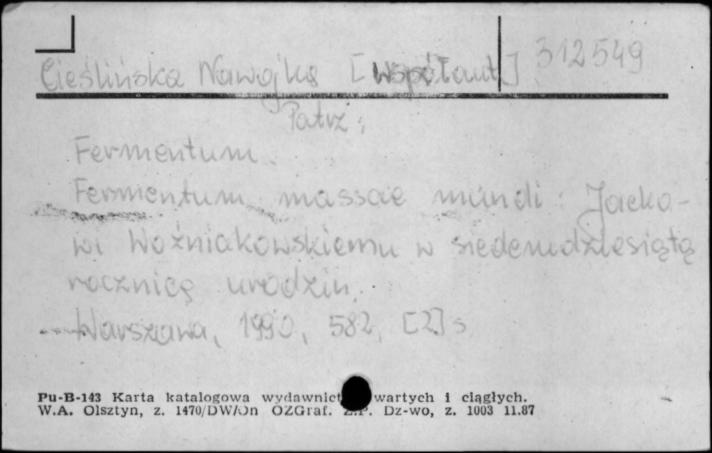 Cieślińska Nawojka [współaut.] 312549
Patrz:
Fermentum.
Fermentum massae mundi: Jacko-
wi Woźniakowskiemu w siedemdziesiątą
rocznicę urodzin.
Warszawa, 1990, 582, [2] s
Pu-B-143 Karta katalogowa wydawnict wartych i ciągłych.
W.A. Olsztyn, z. 1470/DW/On OZGraf. Z.P. Dz-wo, z. 1003 11.87